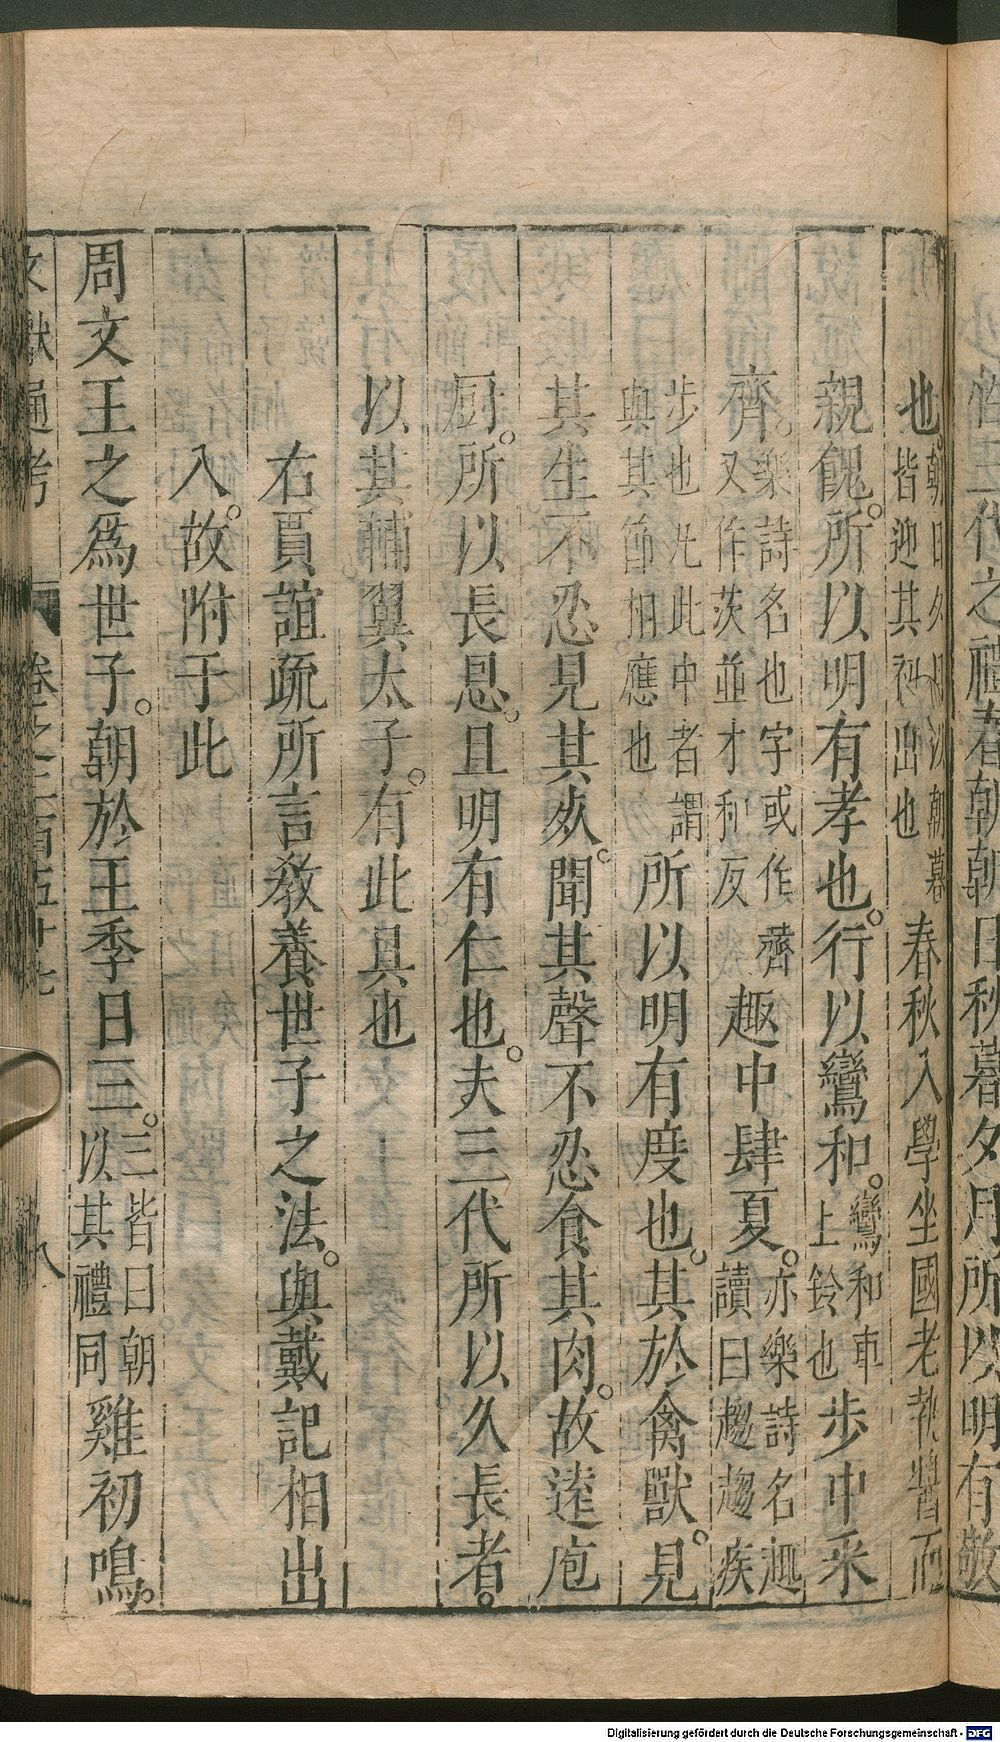 惟三代之禮春朝朝日秋暮夕月所以明有敬
也。朝日夕月以朝暮皆迎其初出也春秋入學坐國老執醬而
親餽。所以明有孝也。行以鸞和。鸞和車上鈴也步中采
齊。樂詩名也字或作薺又作茨並才私反趣中肆夏。亦樂詩名趣讀曰趨趨疾
步也凡此中者謂與其節相應也所以明有度也。其於禽獸。見
其生不忍見其死。聞其聲不忍食其肉。故遠庖
厨。所以長恩。且明有仁也。夫三代所以久長者。
以其輔翼太子。有此具也
右賈誼疏所言敎養世子之法。與戴記相出
入。故附于此
周文王之爲世子。朝於王季日三。三皆曰朝以其禮同雞初鳴。
文獻通考 卷之二百五十七 八
Digitalisierung gefördert durch die Deutsche Forschungsgemeinschaft - DFG